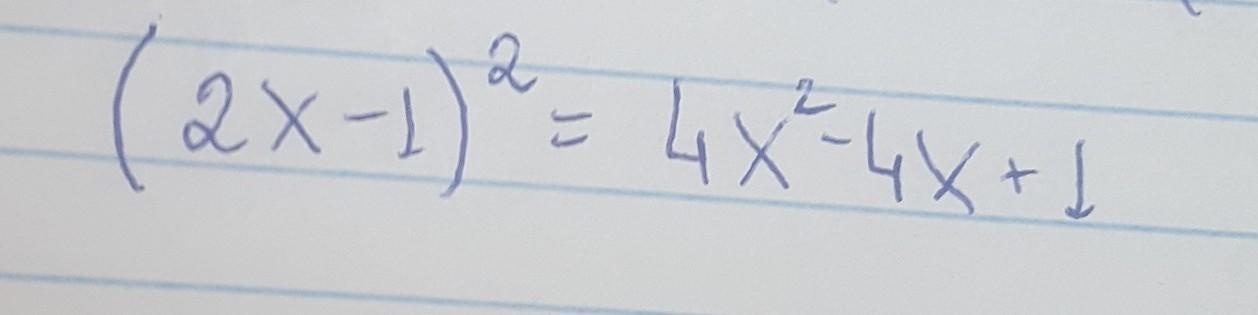 (2x-1)² = 4x²-4x+1